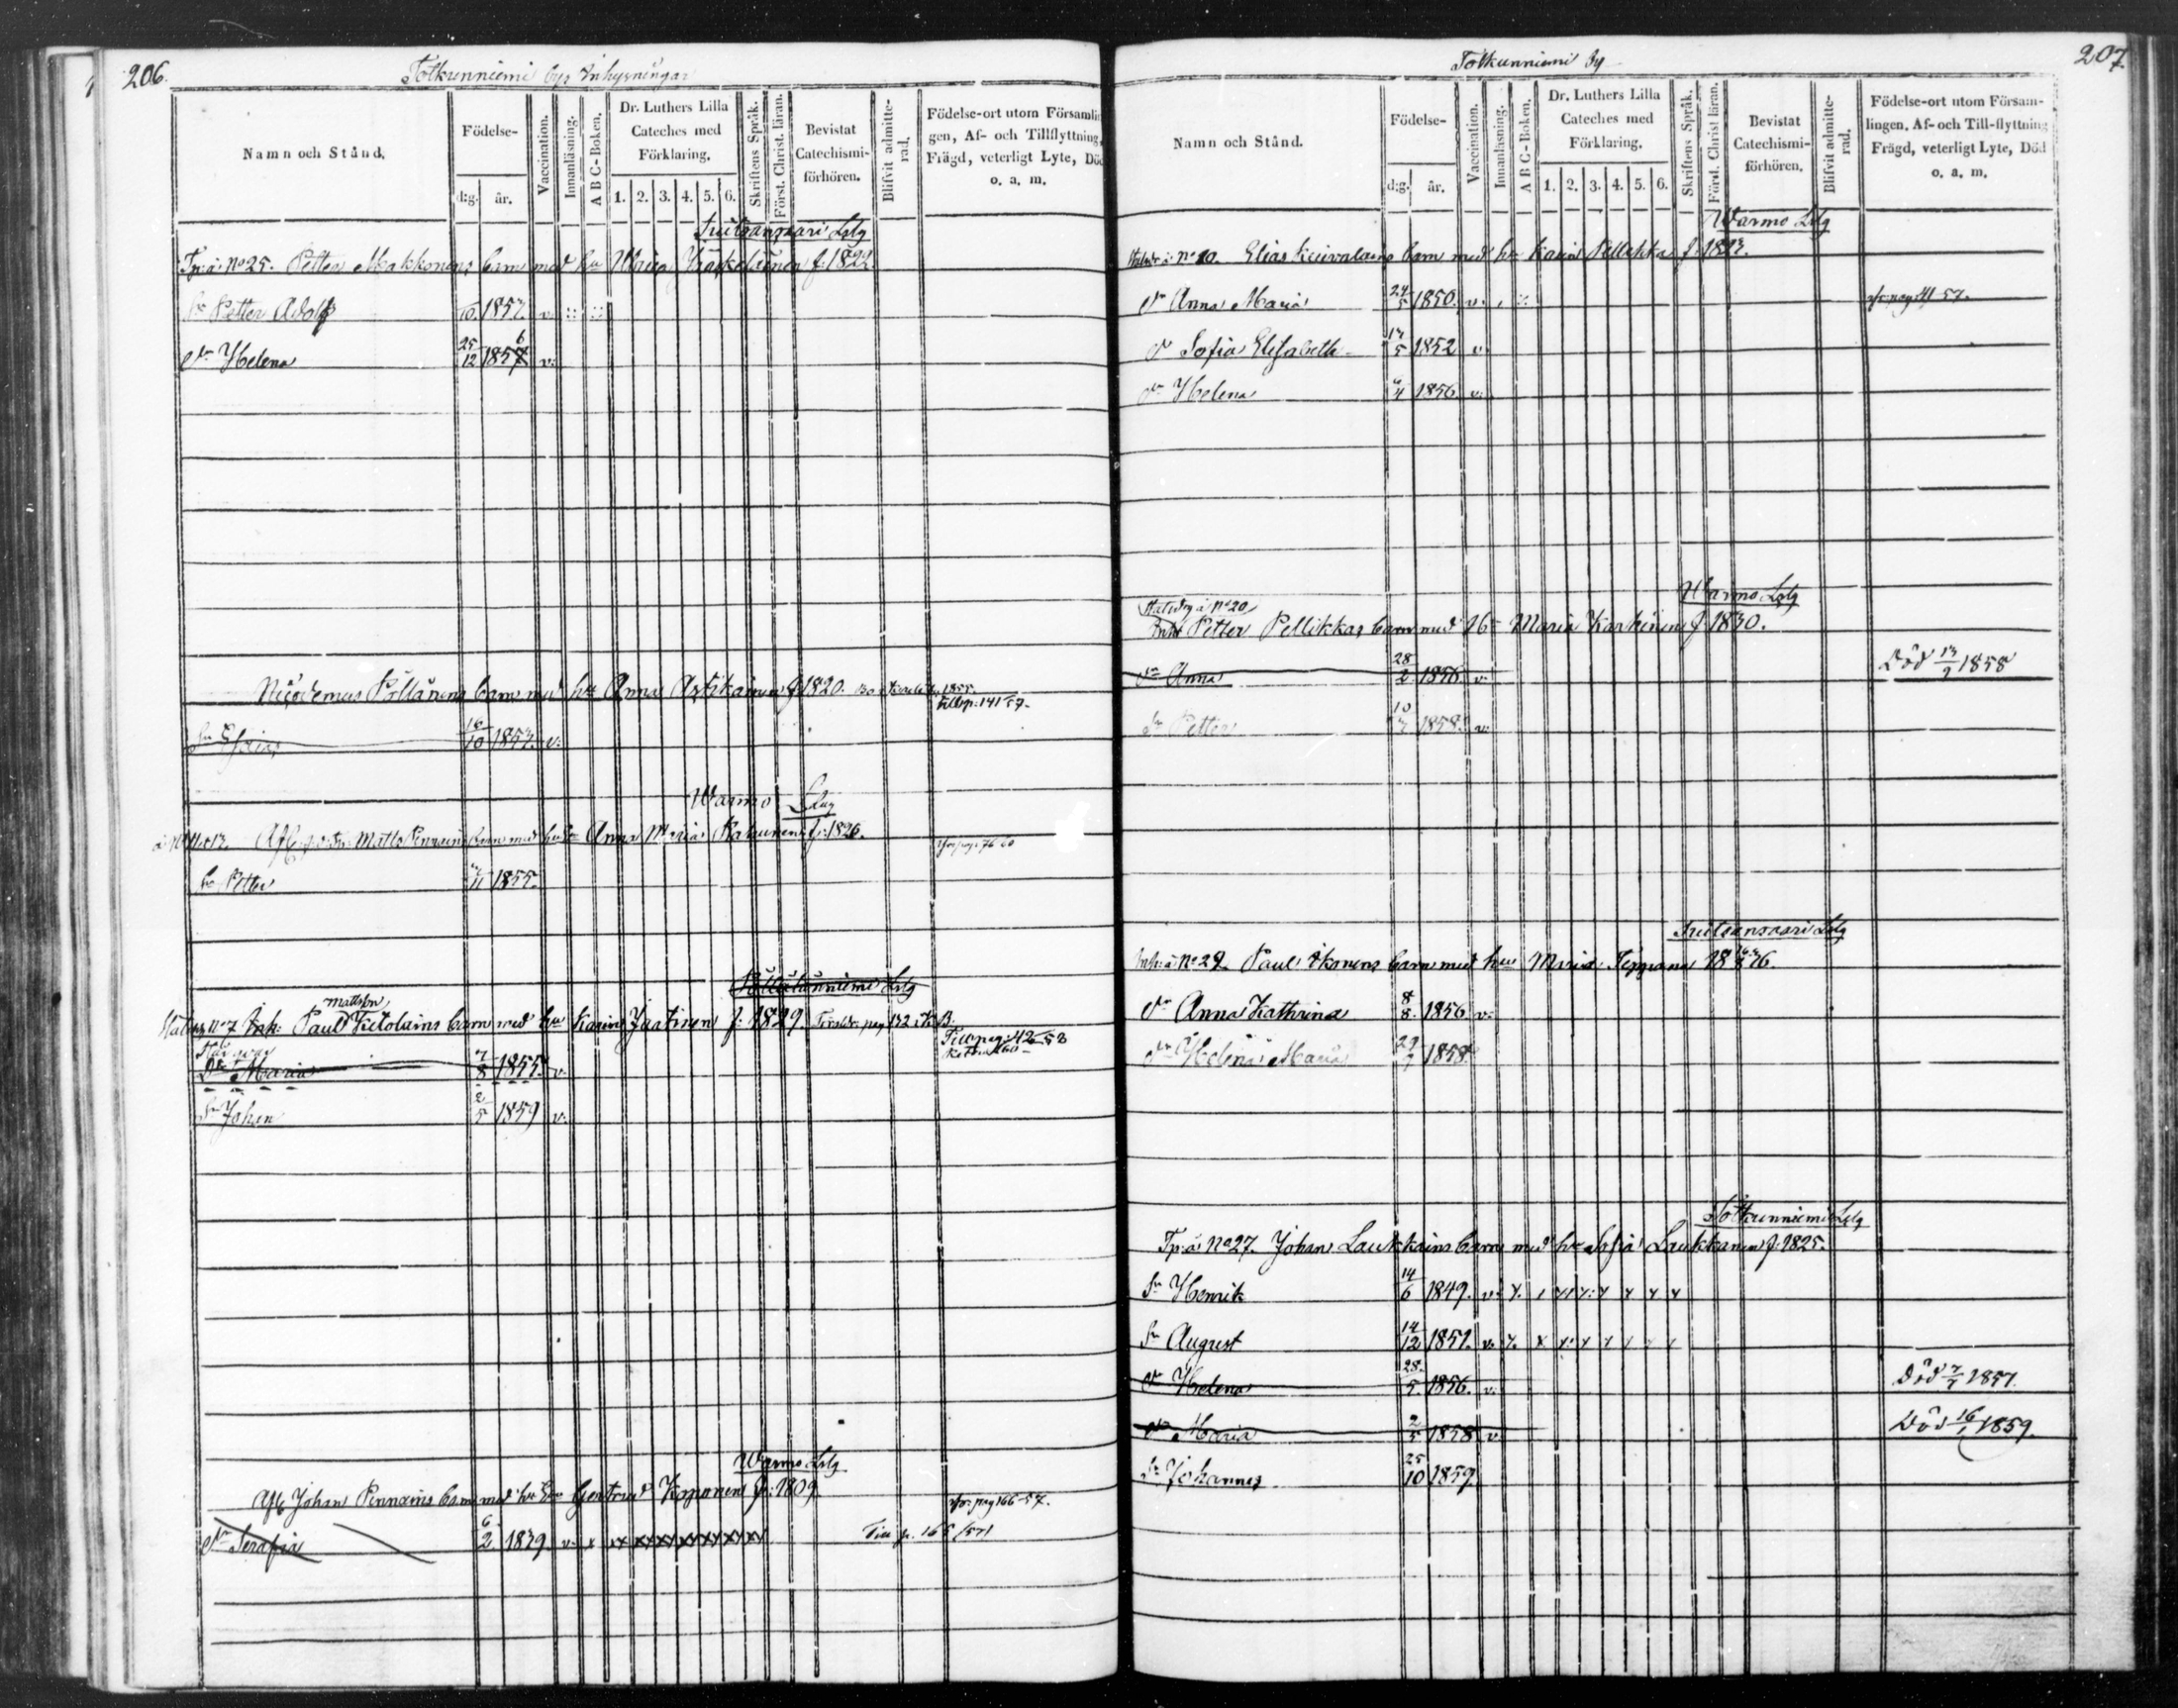 206.
Totkunniemi bys Inhysningar
Namn och Stånd.
Födelse-
d:g. år.
Vaccination.
Innanläsning.
A B C-Boken.
Dr. Luthers Lilla
Cateches med
Förklaring.
1. 2. 3. 4. 5. 6.
Skriftens Språk.
Först. Christ. läran.
Bevistat
Catechismi-
förhören.
Blifvit admitte-
rad.
Födelse-ort utom Församlin
gen, Af- och Tillflyttning,
Frägd, veterligt Lyte, Död
o. a. m.
Suitsansaari Lslg
Tp: å No 25. Petter Makkonens barn med hu Maria Jääskeläinen f. 1822.
Sn Petter Adolf 1852. v.
Dr Helena 25/12 1857 6 v.
Nicodemus Pöllänens barn med hu Anna f. 1820. 1855.
till p. 141/57.
Sn Esaias 16/10 1853. v:
Warmo Lslg
Matts Pennains barn med hu Anna Maria f: 1826.
Sn Petter 11 1855.
Pöllälänniemi Lslg
Mattsson
No 7 Inh: Paul Kietolains barn med hu Karin Jaatinen f: 1829. pag 132
Till pag: 42/58
Dr Maria 7/8 1855. v.
Sn Johan 2/5 1859 v.
Warmo Lslg
Afl. Johan Pennains barn med hu Gertrud Koponen f: 1809.
pag 166-57.
Dr Serafia 6/2 1839. v. x xx xx xx xx xx xx xx
Till p. 166/571
207.
Totkunniemi by
Namn och Stånd.
Födelse-
d:g. år.
Vaccination.
Innanläsning.
A B C-Boken.
Dr. Luthers Lilla
Cateches med
Förklaring.
1. 2. 3. 4. 5. 6.
Skriftens Språk.
Först. Christ läran.
Bevistat
Catechismi-
förhören.
Blifvit admitte-
rad.
Födelse-ort utom Försam-
lingen, Af- och Till-flyttning
Frägd, veterligt Lyte, Död
o. a. m.
Warmo Lslg
No 20. Elias Keivalains barn med hu Karin Pellikka f. 1823.
Dr Anna Maria 24/5 1850. v.
Dr Sofia Elisabeth 13/5 1852 v.
Dr Helena 4 1856. v.
Warmo Lslg
No 20
Petter Pellikkas barn med H: Maria Karhinen f. 1830.
Dr Anna 28/2 1856 v.
Död 13/7 1858
Sn Petter 10 1858. v.
Suitsansaari Lslg
Inh: å No 28. Paul Ikonens barn med hu Maria Teppana
Dr Anna Kathrina 8/8 1856 v.
Dr Helena Maria 29/7 1858.
Totkunniemi Lslg
Tp: å No 27. Johan Laukkains barn med hu Sofia Laukkanen f. 1825.
Sn Henrik 14/6 1849. v.
Sn August 14/12 1851. v.
Dr Helena 28/5 1856. v.
Död 1857.
Dr Maria 2/5 1858 v.
Död 16/1 1859.
Sn Johannes 25/10 1859.